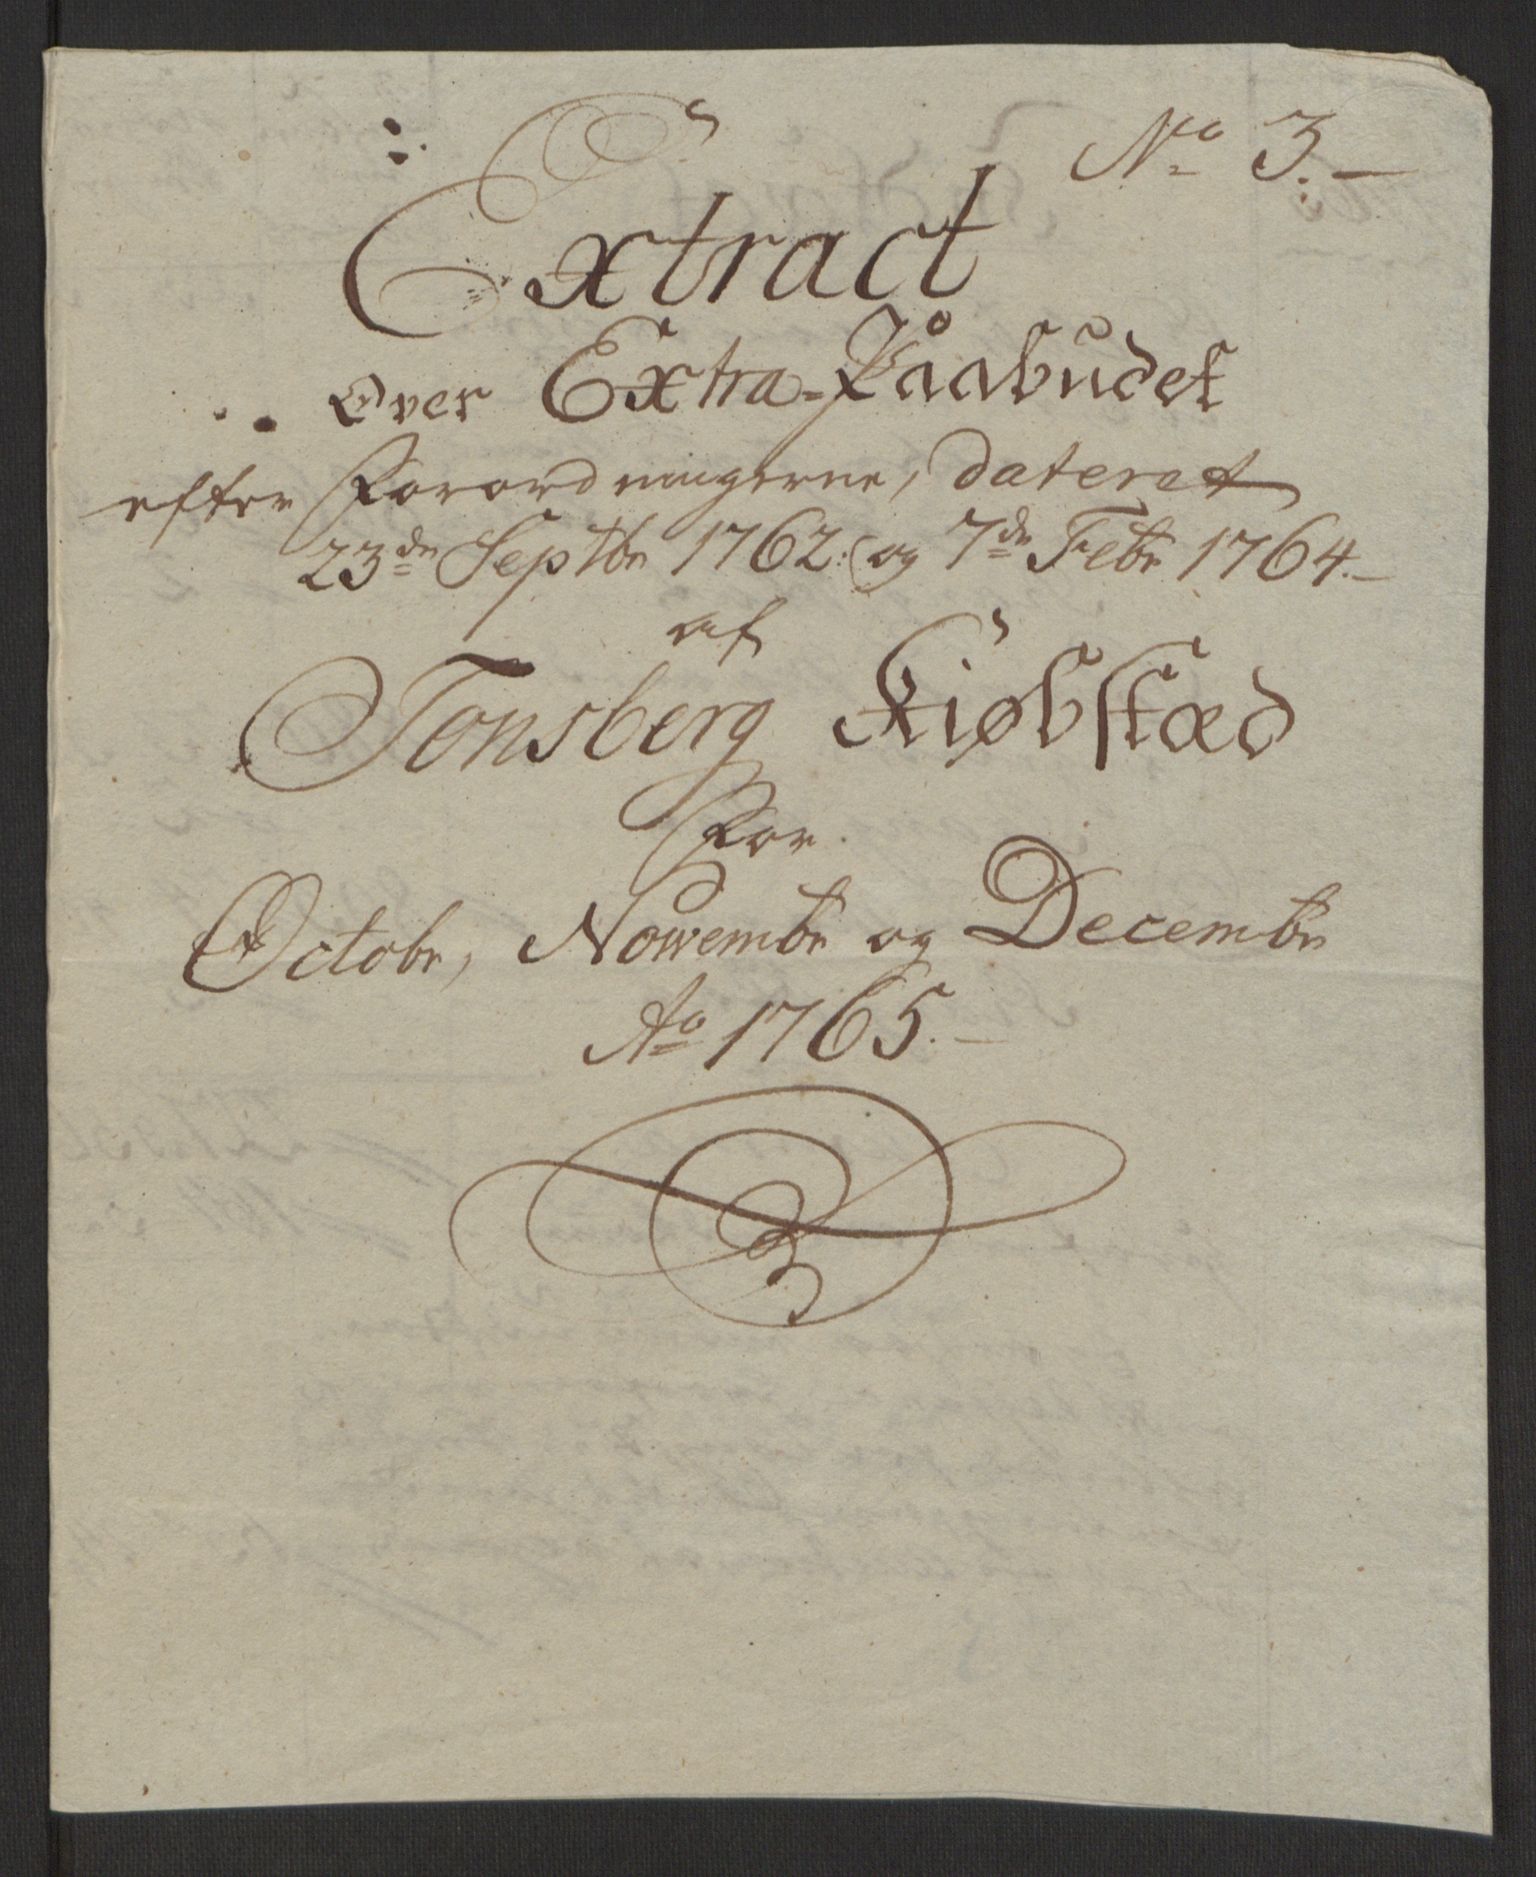 No 3.
Extract
Over Extra-Paabudet
efter Forordningerne, dateret
23de Septbr 1762. og 7de Febr 1764.
af
Tonsberg Kiøbstæd
For
Octobr, Novembr og Decembr
Ao 1765.